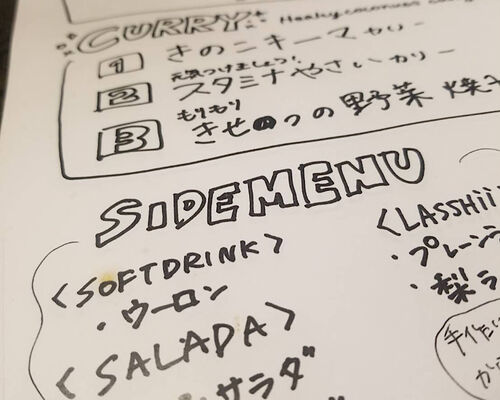 CURRY Healthy coconuts
1 きのこキーマカリー
元気つけましょう!
2 スタミナやさいカリー
もりもり
3 きせつの野菜 焼き
SIDEMENU
<SOFTDRINK>
・ウーロン
<SALADA>
サラダ
<LASSHII
・プレーンラ
・梨ラ
手作り